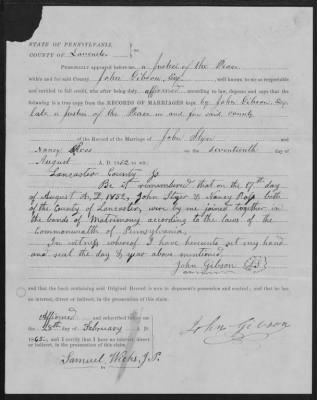 STATE OF PENNSYLVANIA,
COUNTY OF Lancaster } ss.
PERSONALLY appeared before me, a Justice of the Peace
within and for said County John Gibson Esq. well known to me as respectable
and entitled to full credit, who after being duly affirmed according to law, deposes and says that the
following is a true copy from the RECORD OF MARRIAGES kept by John Gibson Esq.
late a Justice of the Peace in and for said county
of the Record of the Marriage of John Styer and
Nancy Ross on the seventeenth day of
August A. D. 1852, to wit:
Lancaster County Ss
Be it remembered that on the 17th day
of August A. D. 1852, John Styer & Nancy Ross both
of the County of Lancaster, were by me joined together in
the bonds of Matrimony according to the laws of the
Commonwealth of Pennsylvania.
In witness whereof I have hereunto set my hand
and seal the day & year above mentioned.
John Gibson
and that the book containing said Original Record is now in deponent's possession and control; and that he has
no interest, direct or indirect, in the prosecution of this claim.
Affirmed and subscribed before me
the 28th day of February A. D.
186 and I certify that I have no interest direct
or indirect, in the prosecution of this claim.
John Gibson
Samuel J.P.